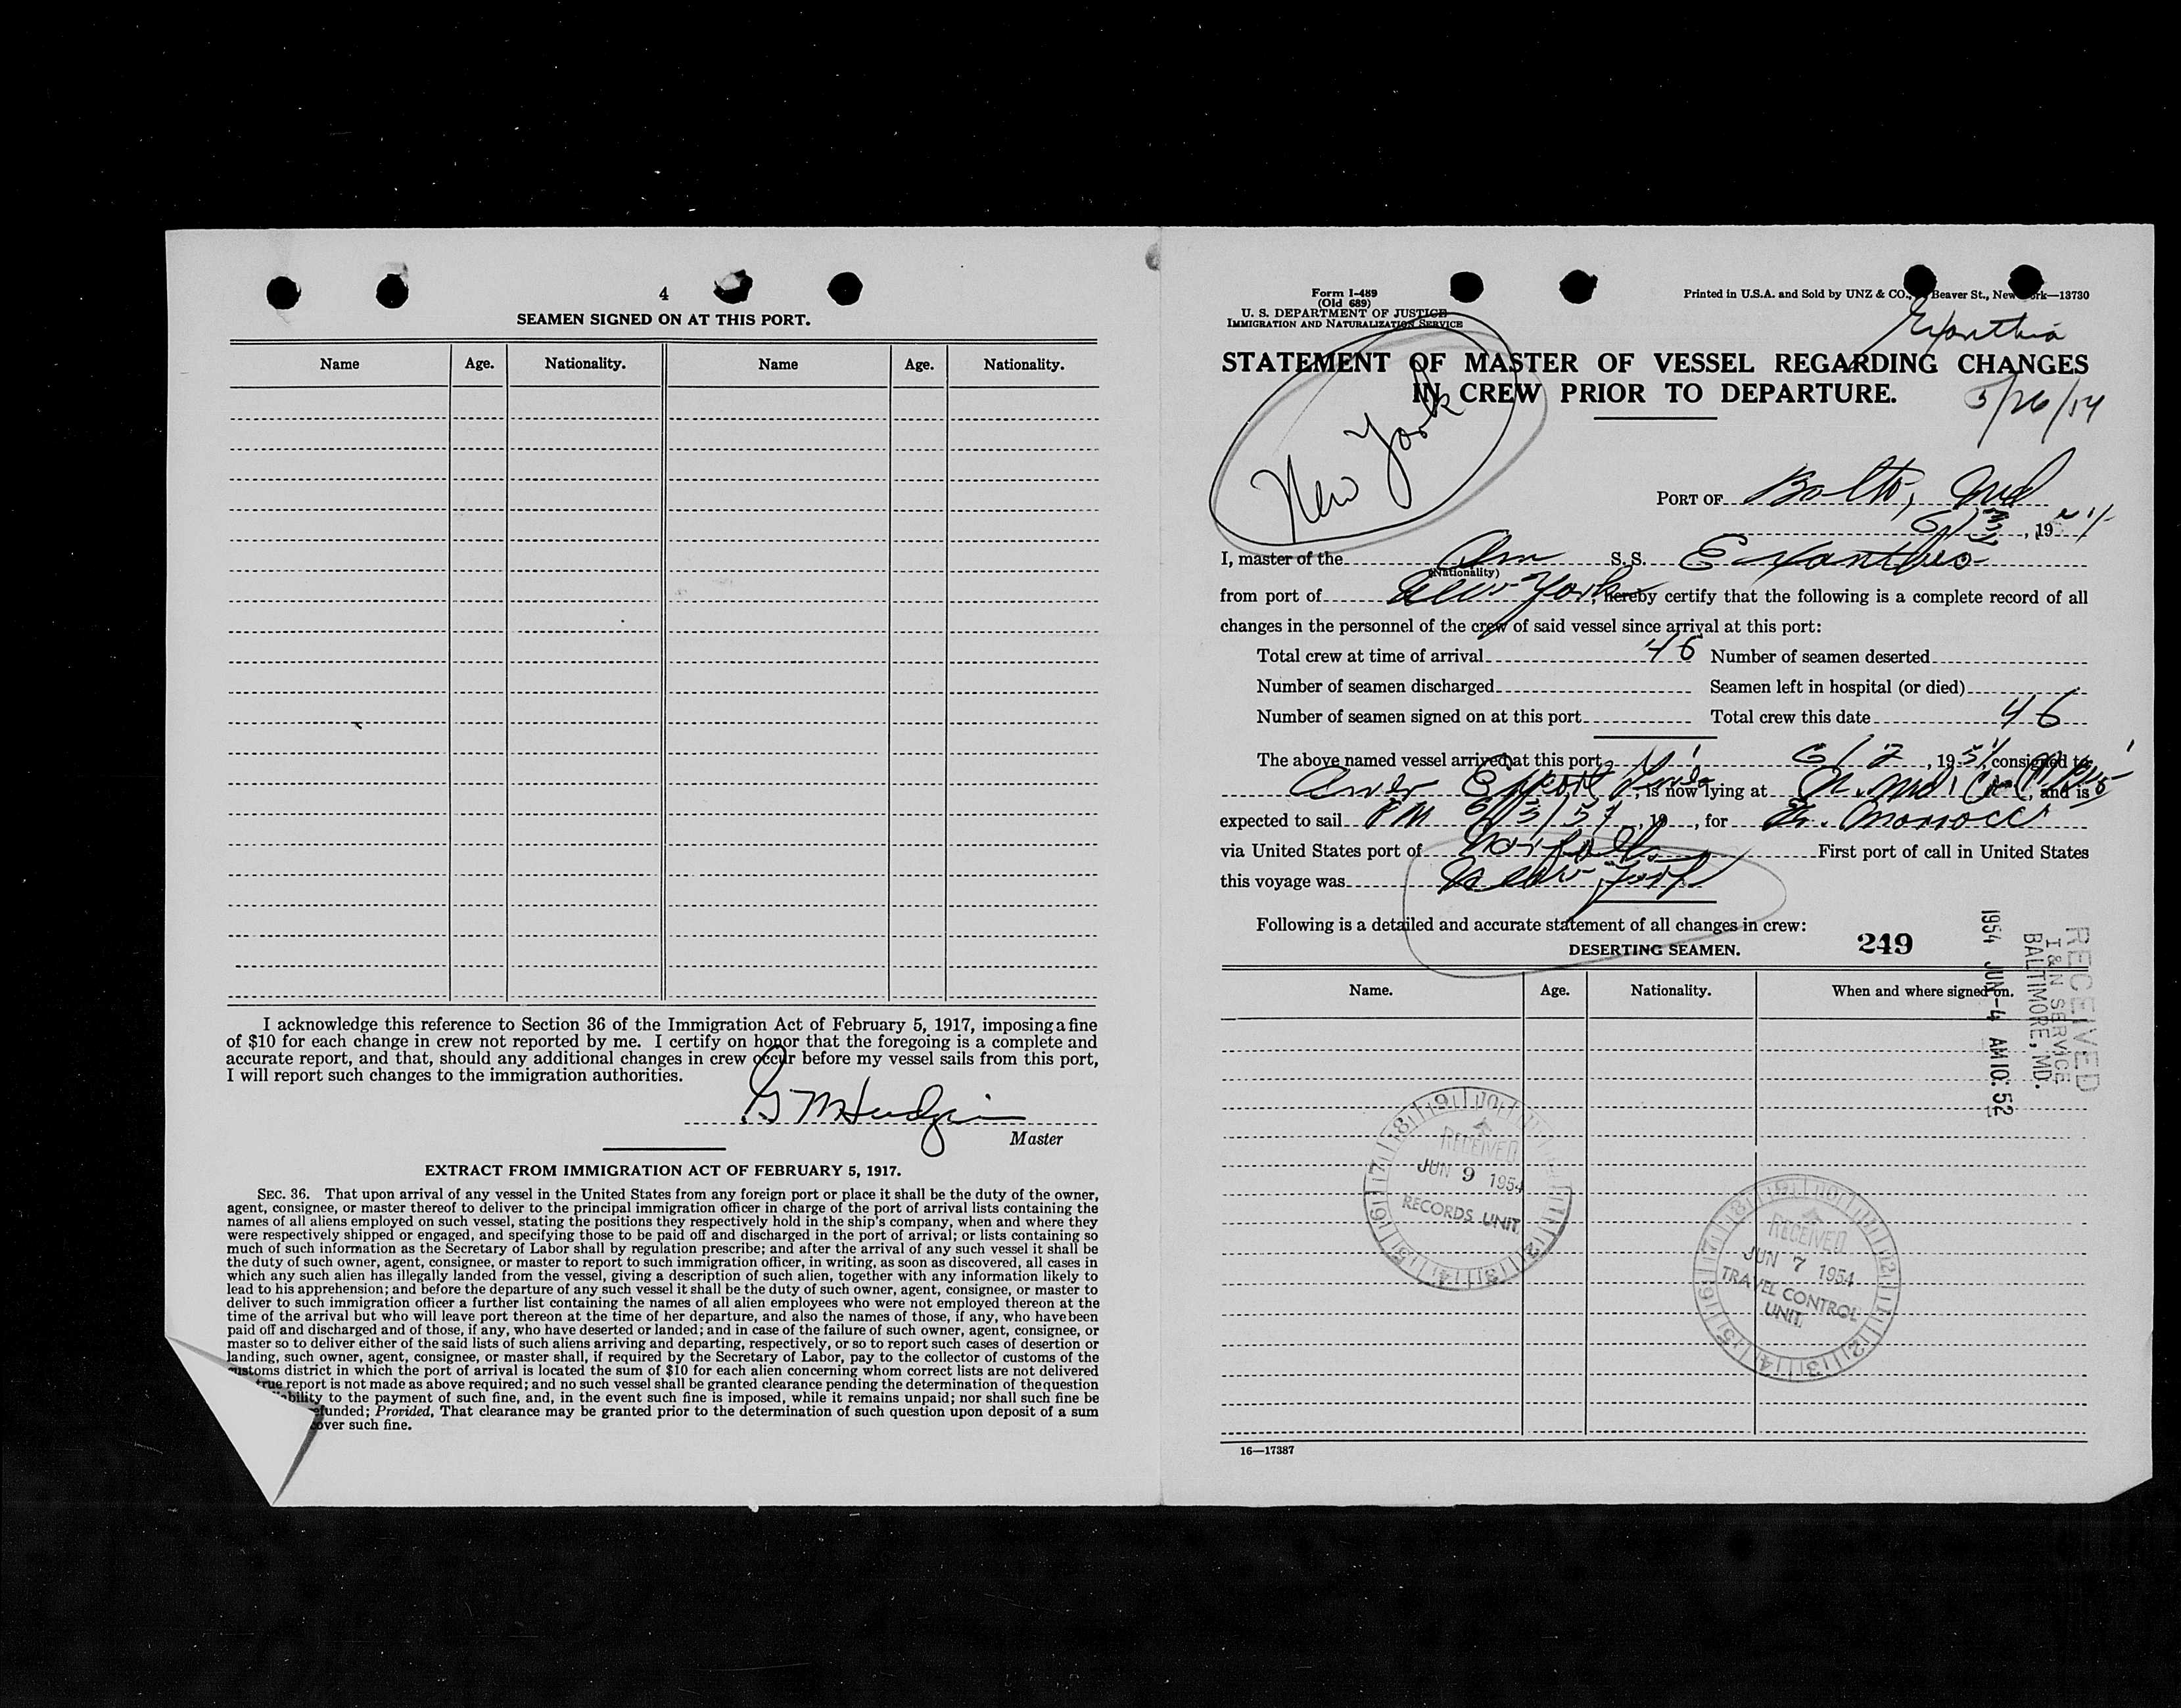 4
SEAMEN SIGNED ON AT THIS PORT.
Name Age. Nationality. Name Age. Nationality.
I acknowledge this reference to Section 36 of the Immigration Act of February 5, 1917, imposing a fine
of $10 for each change in crew not reported by me. I certify on honor that the foregoing is a complete and
accurate report, and that, should any additional changes in crew occur before my vessel sails from this port,
I will report such changes to the immigration authorities.
G M Hudgin
Master
EXTRACT FROM IMMIGRATION ACT OF FEBRUARY 5, 1917.
SEC. 36. That upon arrival of any vessel in the United States from any foreign port or place it shall be the duty of the owner,
agent, consignee, or master thereof to deliver to the principal immigration officer in charge of the port of arrival lists containing the
names of all aliens employed on such vessel, stating the positions they respectively hold in the ship's company, when and where they
were respectively shipped or engaged, and specifying those to be paid off and discharged in the port of arrival; or lists containing so
much of such information as the Secretary of Labor shall by regulation prescribe; and after the arrival of any such vessel it shall be
the duty of such owner, agent, consignee, or master to report to such immigration officer, in writing, as soon as discovered, all cases in
which any such alien has illegally landed from the vessel, giving a description of such alien, together with any information likely to
lead to his apprehension; and before the departure of any such vessel it shall be the duty of such owner, agent, consignee, or master to
deliver to such immigration officer a further list containing the names of all alien employees who were not employed thereon at the
time of the arrival but who will leave port thereon at the time of her departure, and also the names of those, if any, who have been
paid off and discharged and of those, if any, who have deserted or landed; and in case of the failure of such owner, agent, consignee, or
master so to deliver either of the said lists of such aliens arriving and departing, respectively, or so to report such cases of desertion or
landing, such owner, agent, consignee, or master shall, if required by the Secretary of Labor, pay to the collector of customs of the
customs district in which the port of arrival is located the sum of $10 for each alien concerning whom correct lists are not delivered
true report is not made as above required; and no such vessel shall be granted clearance pending the determination of the question
bility to the payment of such fine, and, in the event such fine is imposed, while it remains unpaid; nor shall such fine be
efunded; Provided, That clearance may be granted prior to the determination of such question upon deposit of a sum
over such fine.
Form I-489
(Old 689)
U. S. DEPARTMENT OF JUSTICE
IMMIGRATION AND NATURALIZATION SERVICE
Printed in U.S.A. and Sold by UNZ & CO., Beaver St., New ork—13730
Exanthia
STATEMENT OF MASTER OF VESSEL REGARDING CHANGES
IN CREW PRIOR TO DEPARTURE.
5/26/54
New York
PORT OF Balto, Md
6/3, 1954
I, master of the Am S. S. Exanthia
(Nationality)
from port of New York, hereby certify that the following is a complete record of all
changes in the personnel of the crew of said vessel since arrival at this port:
Total crew at time of arrival 46 Number of seamen deserted
Number of seamen discharged Seamen left in hospital (or died)
Number of seamen signed on at this port Total crew this date 46
The above named vessel arrived at this port 6/2, 1954, consigned to
Amer Export Lines, is now lying at and is
expected to sail PM 6/3/54, 19, for Fr. Morocco
via United States port of Norfolk First port of call in United States
this voyage was New York
Following is a detailed and accurate statement of all changes in crew:
DESERTING SEAMEN. 249
Name. Age. Nationality. When and where signed on.
RECEIVED
I & N SERVICE
BALTIMORE, MD.
1954 JUN -4 AM 10: 52
RECEIVED
JUN 9 1954
RECORDS UNIT
RECEIVED
JUN 7 1954
TRAVEL CONTROL
UNIT.
16—17387